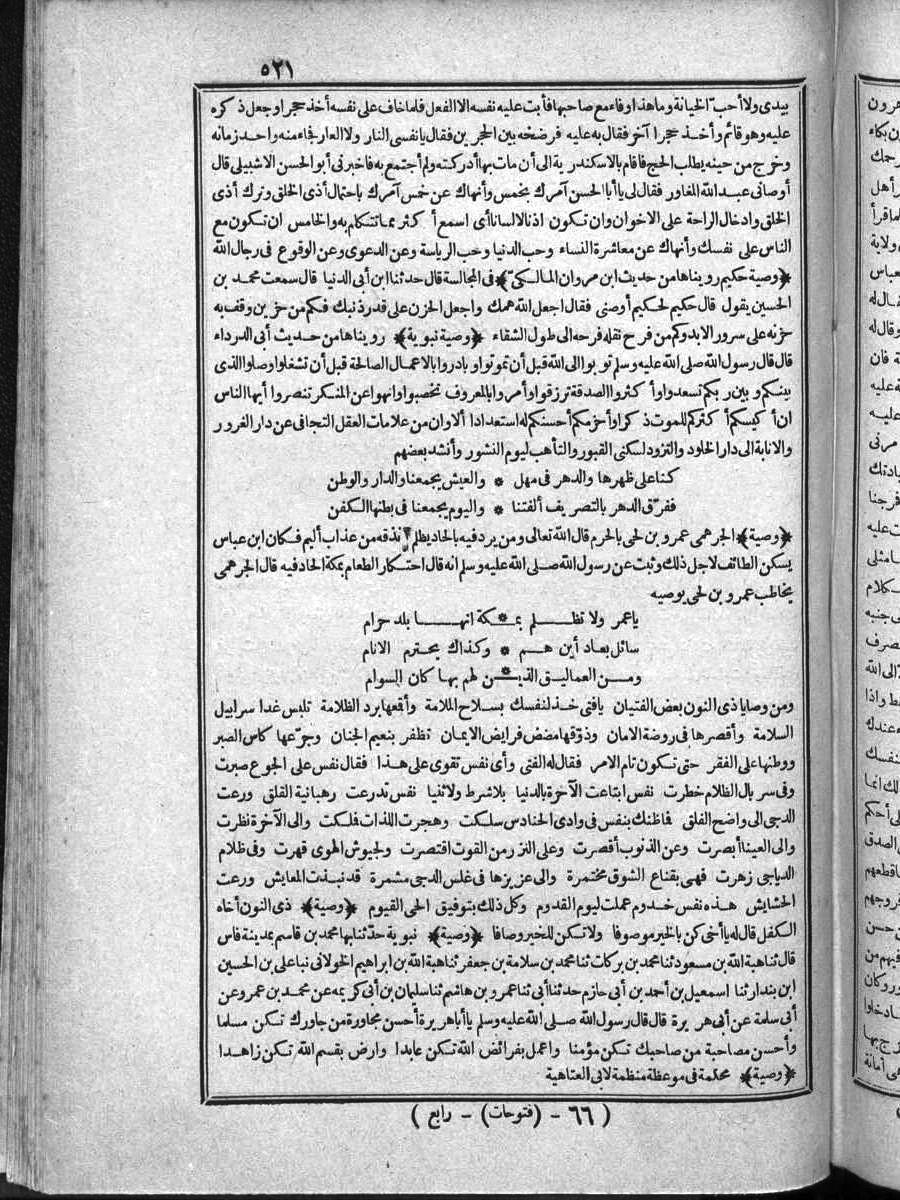 ٥٢١
بيدى ولا أحب الخيانة وما هذا وفاء مع صاحبها فأبت عليه نفسه الا الفعل فلما خاف على نفسه أخذ حجرا وجعل ذكره
عليه وهو قائم وأخذ حجرا آخر فقال به عليه فرضخه بين الحجرين فقال يا نفسى النار ولا العار فجاء منه واحد زمانه
وخرج من حينه يطلب الحج فاقام بالاسكندرية الى أن مات بها أدركته ولم أجتمع به فاخبرنى أبو الحسن الاشبيلى قال
أوصانى عبد الله المغاور فقال لى يا أبا الحسن آمرك بخمس وأنهاك عن خمس آمرك باحتمال أذى الخلق وترك أذى
الخلق وادخال الراحة على الاخوان وان تكون اذنا لا لسانا أى اسمع أكثر مما تتكلم به والخامس ان تكون مع
الناس على نفسك وأنهاك عن معاشرة النساء وحب الدنيا وحب الرياسة وعن الدعوى وعن الوقوع فى رجال الله
﴿وصية حكيم رويناها من حديث ابن مروان المالكى﴾ فى المجالسة قال حدثنا ابن أبى الدنيا قال سمعت محمد بن
الحسين يقول قال حكيم لحكيم أوصنى فقال اجعل الله همك واجعل الحزن على قدر ذنبك فكم من حزين وقف به
حزنه على سرور الابد وكم من فرح نقله فرحه الى طول الشقاء ﴿وصية نبوية﴾ رويناها من حديث أبى الدرداء
قال قال رسول الله صلى الله عليه وسلم توبوا الى الله قبل أن تموتوا وبادروا بالاعمال الصالحة قبل أن تشغلوا وصلوا الذى
بينكم وبين ربكم تسعدوا وأكثروا الصدقة ترزقوا وأمروا بالمعروف تخصبوا وانهوا عن المنكر تنصروا أيها الناس
ان أكيسكم أكثركم للموت ذكرا وأحزمكم أحسنكم له استعدادا ألا وان من علامات العقل التجافى عن دار الغرور
والانابة الى دار الخلود والتزود لسكنى القبور والتأهب ليوم النشور وأنشد بعضهم
كنا على ظهرها والدهر فى مهل * والعيش يجمعنا والدار والوطن
ففرق الدهر بالتصريف ألفتنا * واليوم يجمعنا فى بطنها الكفن
﴿وصية﴾ الجرهمى عمرو بن لحى بالحرم قال الله تعالى ومن يرد فيه بالحاد بظلم نذقه من عذاب أليم فكان ابن عباس
يسكن الطائف لاجل ذلك وثبت عن رسول الله صلى الله عليه وسلم انه قال احتكار الطعام بمكة الحاد فيه قال الجرهمى
يخاطب عمرو بن لحى يوصيه
يا عمر ولا تظلم بمكة * انها بلد حرام
سائل بعاد أين هم * وكذاك يحترم الانام
ومن العماليق الذين * لهم بها كان السوام
ومن وصايا ذى النون بعض الفتيان يا فتى خذ لنفسك بسلاح الملامة وأقعها برد الظلامة تلبس غدا سرابيل
السلامة وأقصرها فى روضة الامان وذوقها مضض فرايض الايمان تظفر بنعيم الجنان وجرعها كاس الصبر
ووطنها على الفقر حتى تكون تام الامر فقال له الفتى وأى نفس تقوى على هذا فقال نفس على الجوع صبرت
وفى سربال الظلام خطرت نفس ابتاعت الآخرة بالدنيا بلا شرط ولا ثنيا نفس تدرعت رهبانية القلق ورعت
الدجى الى واضح الفلق فاظنك بنفس فى وادى الحنادس سلكت وهجرت اللذات فلكت والى الآخرة نظرت
والى العينا أبصرت وعن الذنوب أقصرت وعلى النزر من القوت اقتصرت ولجيوش الهوى قهرت وفى ظلام
الدياجى زهرت فهى بقناع الشوق مختمرة والى عزيزها فى غلس الدجى مشمرة قد نبذت المعايش ورعت
الحشايش هذه نفس خدوم عملت ليوم القدوم وكل ذلك بتوفيق الحى القيوم ﴿وصية﴾ ذى النون أخاه
الكفل قال له يا أخى كن بالخير موصوفا ولا تكن للخير وصافا ﴿وصية﴾ نبوية حدثنا بها محمد بن قاسم بمدينة فاس
قال ثنا هبة الله بن مسعود ثنا محمد بن بركات ثنا محمد بن سلامة بن جعفر ثنا هبة الله بن ابراهيم الخولانى نبا على بن الحسين
ابن بندار ثنا اسمعيل بن أحمد بن أبى حازم حدثنا أبى ثنا عمرو بن هاشم ثنا سليمان بن أبى كريمه عن محمد بن عمرو عن
أبى سلمة عن أبى هريرة قال قال رسول الله صلى الله عليه وسلم يا أبا هريرة أحسن مجاورة من جاورك تكن مسلما
وأحسن مصاحبة من صاحبك تكن مؤمنا واعمل بفرائض الله تكن عابدا وارض بقسم الله تكن زاهدا
﴿وصية﴾ محكمة فى موعظة منظمة لابى العتاهية
( ٦٦ - (فتوحات) - رابع )